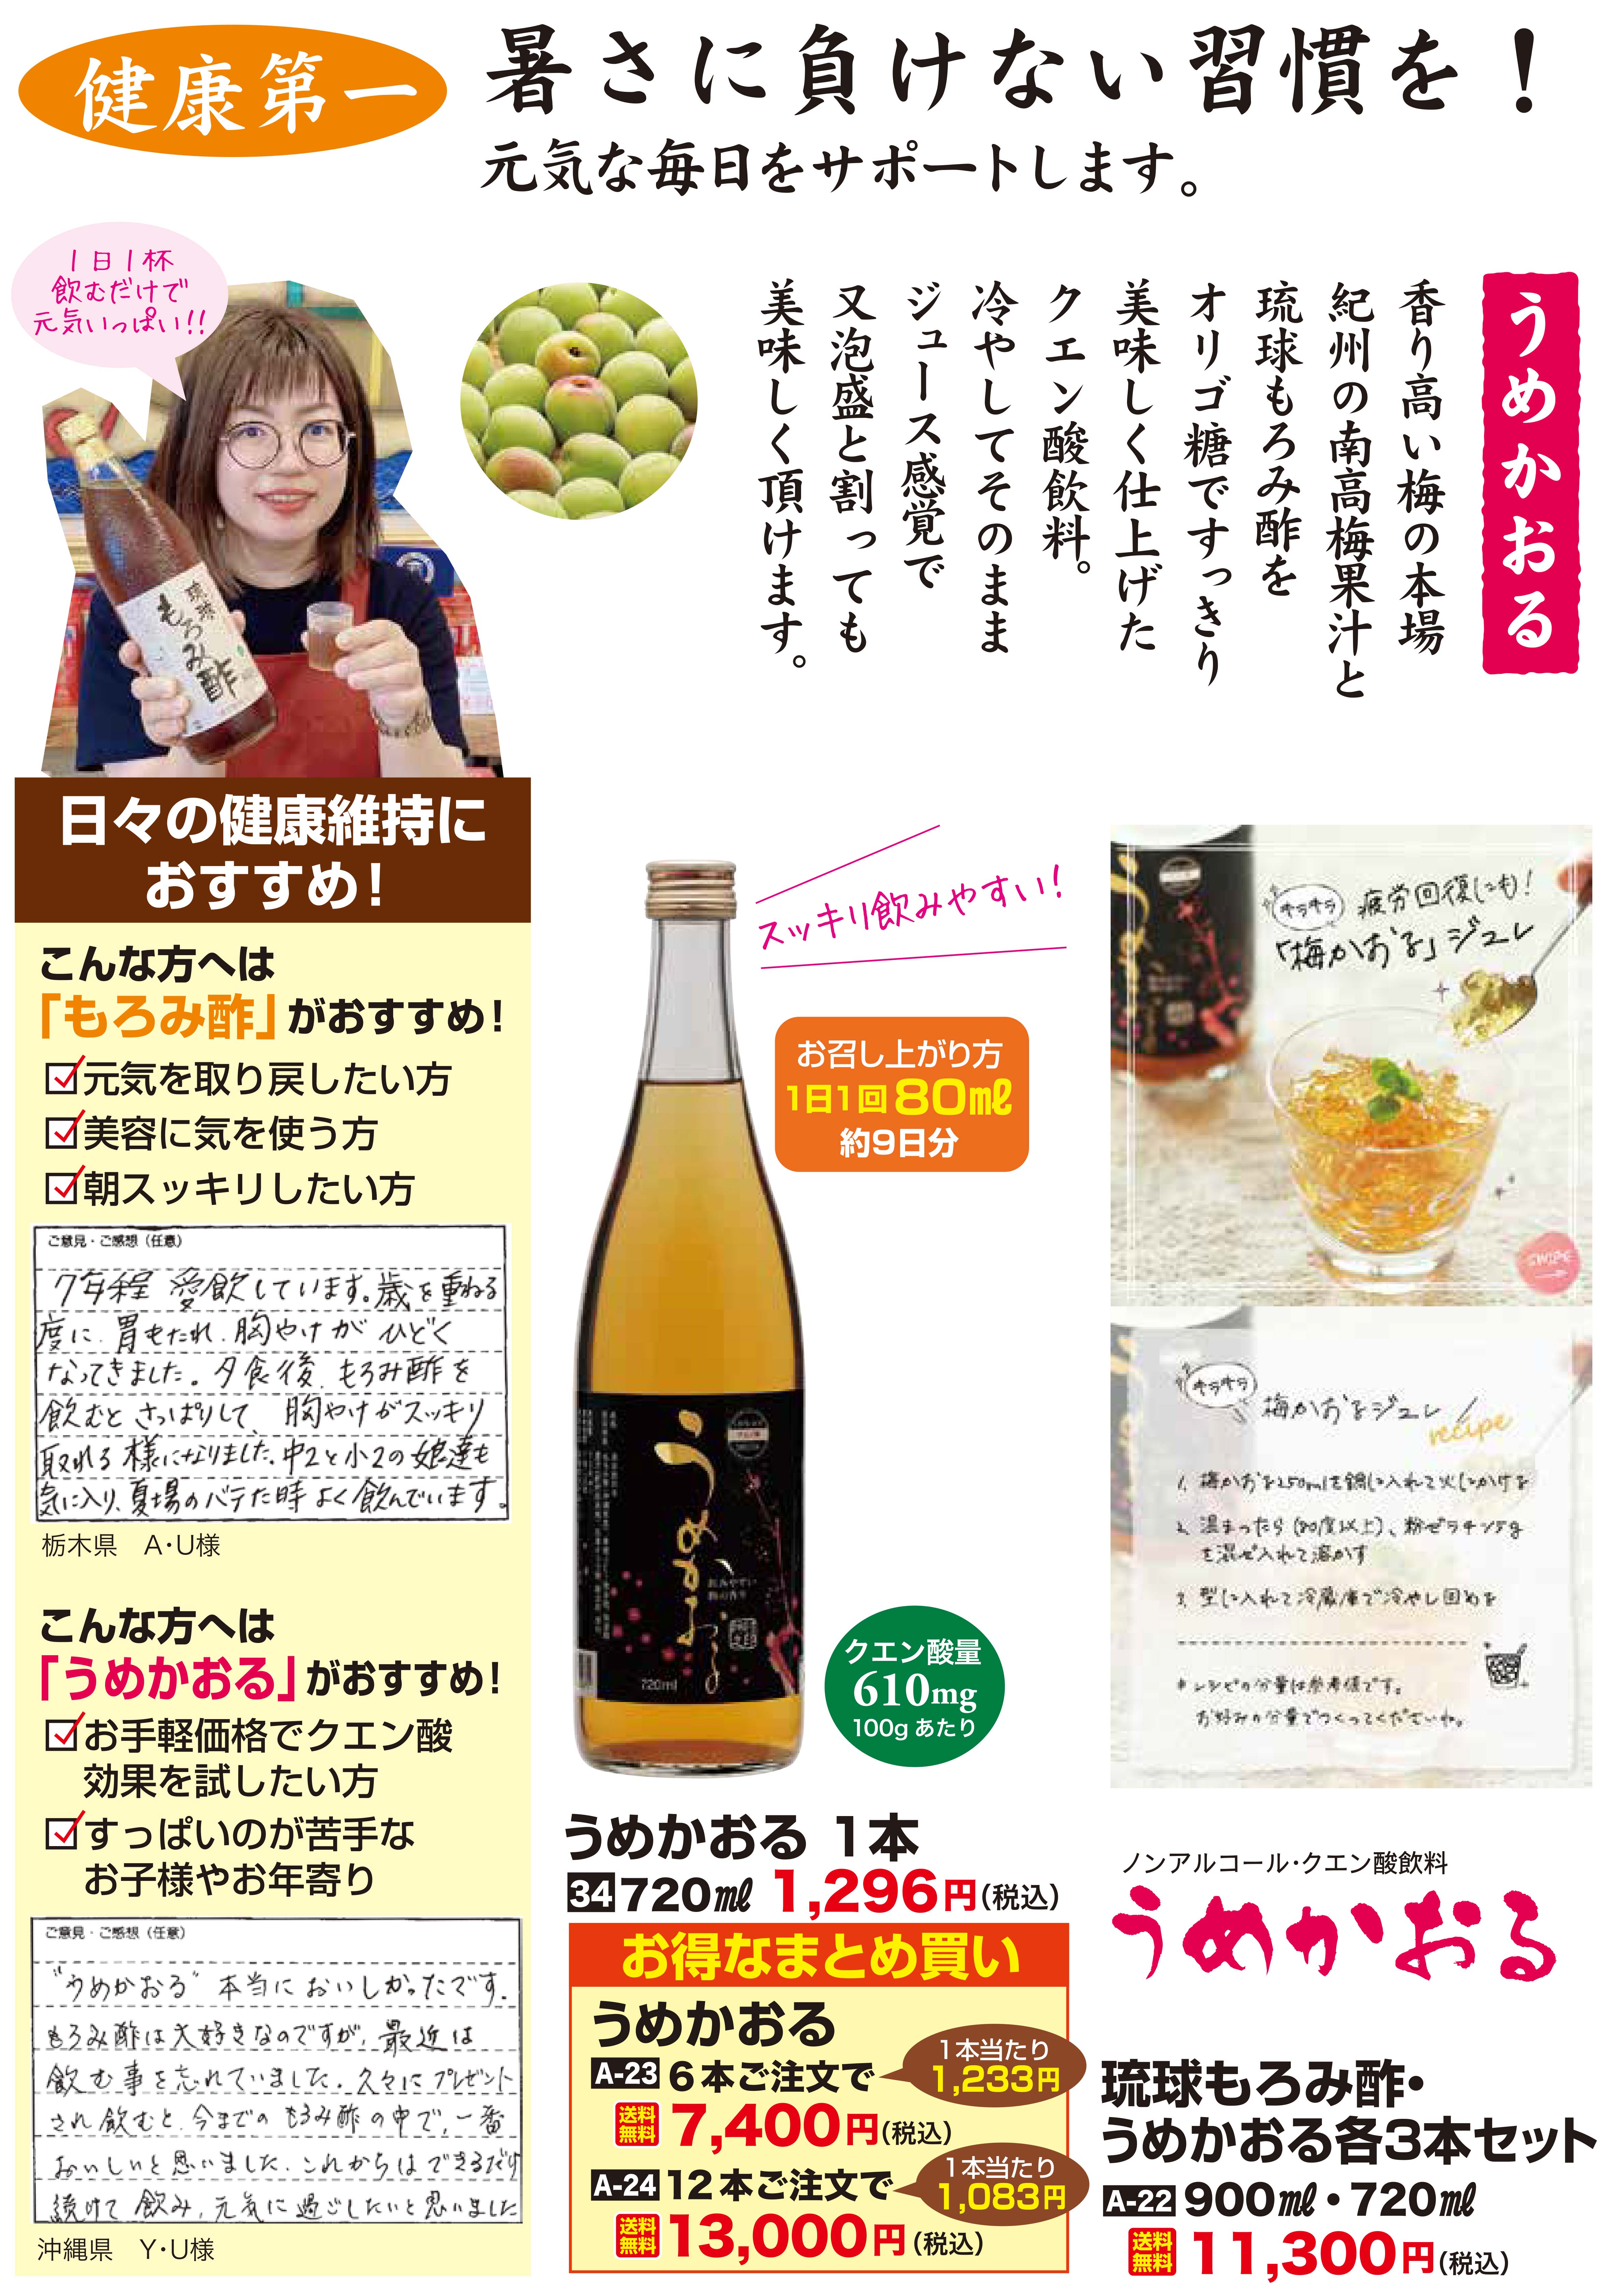 健康第一
暑さに負けない習慣を!
元気な毎日をサポートします。
1日1杯
飲むだけで
元気いっぱい!!
琉球
もろみ酢
うめかおる
香り高い梅の本場
紀州の南高梅果汁と
琉球もろみ酢を
オリゴ糖ですっきり
美味しく仕上げた
クエン酸飲料。
冷やしてそのまま
ジュース感覚で
又泡盛と割っても
美味しく頂けます。
日々の健康維持に
おすすめ!
こんな方へは
「もろみ酢」がおすすめ!
元気を取り戻したい方
美容に気を使う方
朝スッキリしたい方
ご意見・ご感想(任意)
7年程 愛飲しています。歳を重ねる
度に、胃もたれ、胸やけが ひどく
なってきました。夕食後、もろみ酢を
飲むと さっぱりして、胸やけがスッキリ
取れる 様になりました。中2と小2の娘達も
気に入り、夏場のバテた時 よく飲んでいます。
栃木県 A・U様
こんな方へは
「うめかおる」がおすすめ!
お手軽価格でクエン酸
効果を試したい方
すっぱいのが苦手な
お子様やお年寄り
ご意見・ご感想(任意)
"うめかおる" 本当に おいしかったです。
もろみ酢は大好きなのですが、最近は
飲む事を忘れていました。久々に プレゼント
され 飲むと、今までの もろみ酢の中で、一番
おいしいと思いました。これからは できるだけ
続けて 飲み、元気に過ごしたいと思いました
沖縄県 Y・U様
スッキリ飲みやすい!
お召し上がり方
1日1回80㎖
約9日分
うめかおる
720ml
クエン酸量
610mg
100gあたり
キラキラ 疲労回復にも!
「梅かおる」ジュレ
SWIPE
キラキラ 梅かおるジュレ
recipe
1. 梅かおる250mlを鍋に入れて火にかける
2. 温まったら(80度以上)、粉ゼラチン5g
を混ぜ入れて溶かす
3. 型に入れて冷蔵庫で冷やし固める
*レシピの分量は参考値です。
お好みの分量でつくってくださいね。
うめかおる 1本
34 720㎖ 1,296円(税込)
お得なまとめ買い
うめかおる
A-23 6本ご注文で
1本当たり
1,233円
送料
無料
7,400円(税込)
A-24 12本ご注文で
1本当たり
1,083円
送料
無料
13,000円(税込)
ノンアルコール・クエン酸飲料
うめかおる
琉球もろみ酢・
うめかおる各3本セット
A-22 900㎖・720㎖
送料
無料
11,300円(税込)